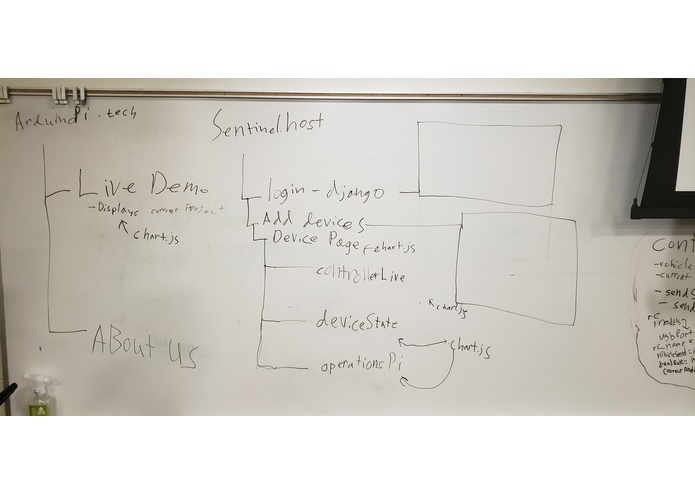 ArduinoPi.tech
Live Demo
- Displays current Project
chart.js
About us
Sentinel.host
login - django
Add devices
Device Page chart.js
controllerLive
chart.js
deviceState
chart.js
operationsPi
cont
- vehicle
- current
- send
- send
rc
models
usbPort
rc name =